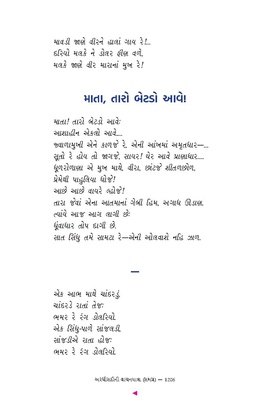 માવડી જાણે વીરને હાલાં ગાય રે!...
દરિયો મલકે ને ડોલર ફીણ વળે,
મલકે જાણે વીર મારાનાં મુખ રે!
માતા, તારો બેટડો આવે!
માતા! તારો બેટડો આવેઃ
આશાહીન એકલો આવે....
જ્વાળામુખી એને કાળજે રે, એની આંખમાં અમૃતધાર—...
સૂતો રે હોય તો જાગજે, સાયર! ઘેર આવે પ્રાણાધાર....
ધૂળરોળાણા એ મુખ માથે, વીરા, છાંટજે શીતળછોળ,
પ્રેમેથી પાહુલિયા ધોજે!
આછે આછે વાયરે લ્હોજે!
તારા જેવાં એના આતમાનાં ગેબી હિમ, અગાધ ઊંડાણ,
ત્યાંયે આજ આગ લાગી છેઃ
ધૂંવાધાર તોપ દાગી છે.
સાત સિંધુ તમે સામટા રે—એની ઓલવાશે નહિ ઝાળ.
—
એક આભ માથે ચાંદરડું
ચાંદરડે રાતાં તેજઃ
ભમર રે રંગ ડોલરિયો.
એક સિંધુ-પાળે સાંજલડી,
સાંજડીએ રાતા હોજઃ
ભમર રે રંગ ડોલરિયો.